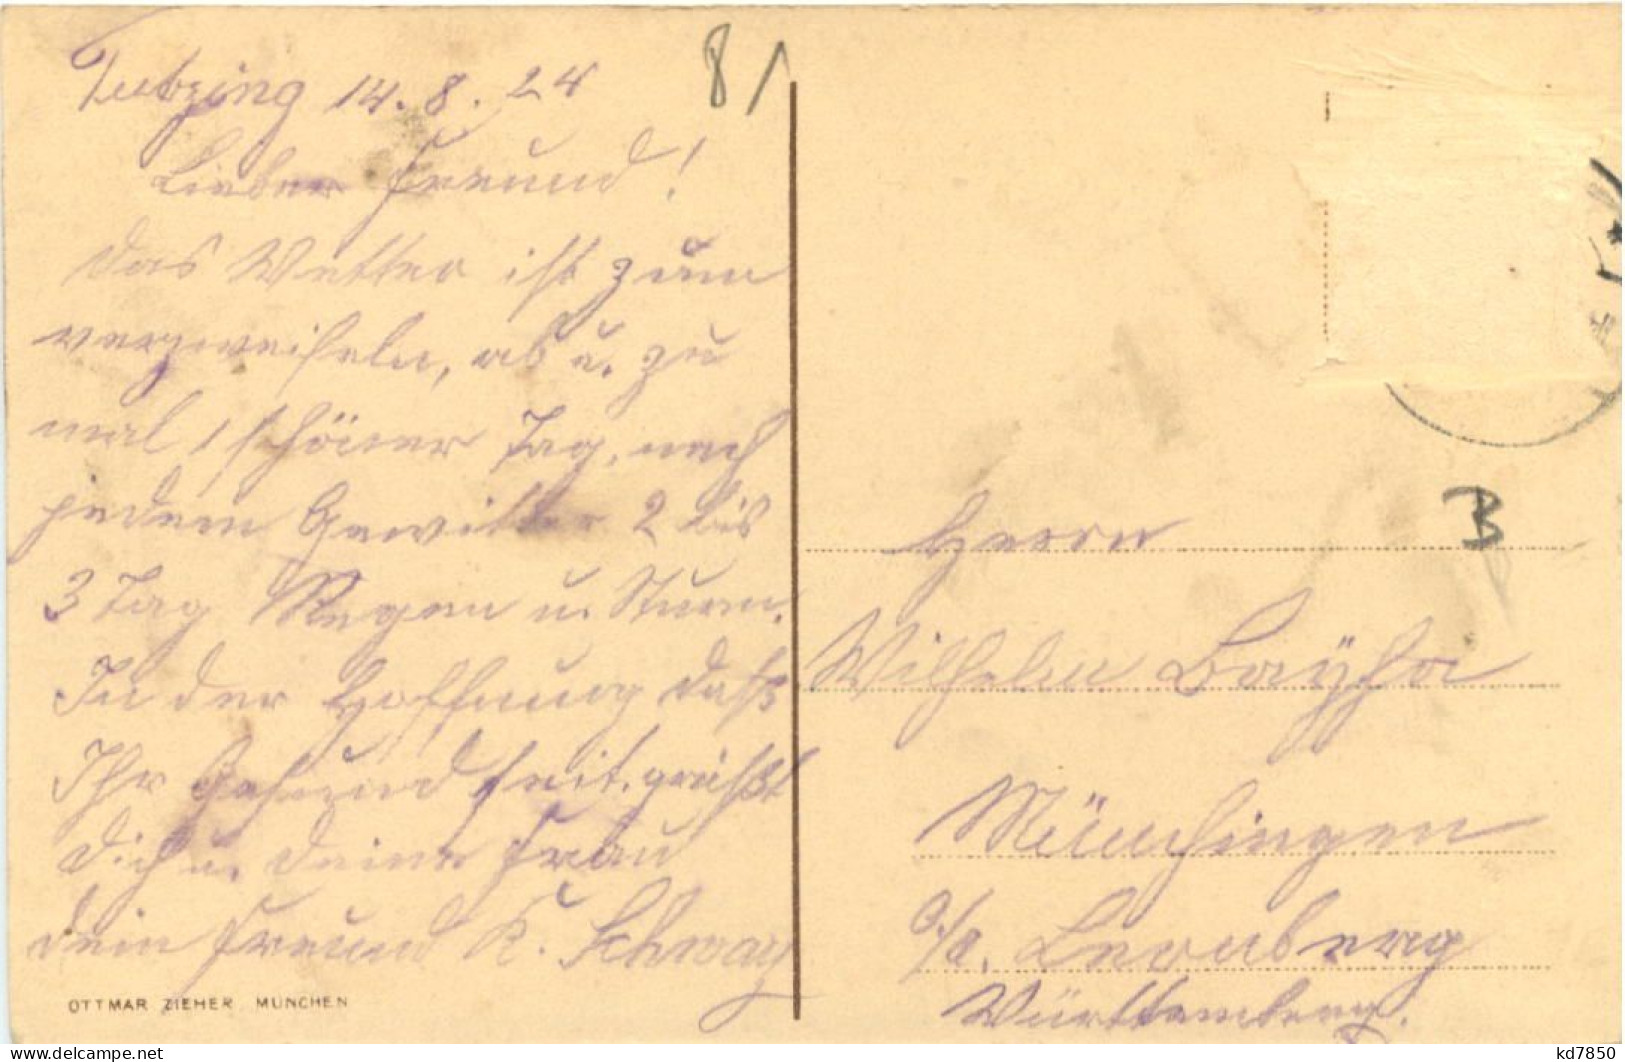 Tutzing 14. 8. 24
81
Lieber Freund!
das Wetter ist zum
verzweifeln, ab u. zu
mal 1 schöner Tag, nach
jedem Gewitter 2 bis
3 Tag Regen u. Sturm.
In der Hoffnung dass
Ihr Gesund seit, grüßt
Dich u. Deine Frau
Dein Freund K. Schway
OTTMAR ZIEHER MÜNCHEN
B
Herrn
Wilhelm Bayha
Münchingen
O/A. Leonberg
Württemberg.
kd7850